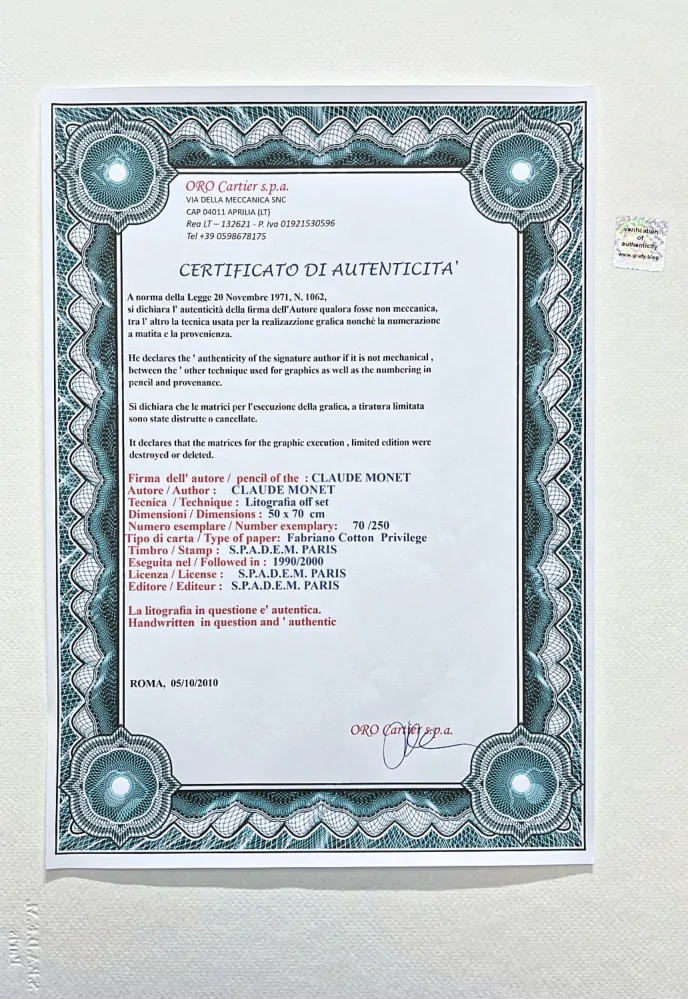 ORO Cartier s.p.a.
VIA DELLA MECCANICA SNC
CAP 04011 APRILIA (LT)
Rea LT – 132621 - P. Iva 01921530596
Tel +39 0598678175
verification
of
authenticity
www.grafy.blog
CERTIFICATO DI AUTENTICITA'
A norma della Legge 20 Novembre 1971, N. 1062,
si dichiara l' autenticità della firma dell'Autore qualora fosse non meccanica,
tra l' altro la tecnica usata per la realizazzione grafica nonchè la numerazione
a matita e la provenienza.
He declares the ' authenticity of the signature author if it is not mechanical ,
between the ' other technique used for graphics as well as the numbering in
pencil and provenance.
Si dichiara che le matrici per l'esecuzione della grafica, a tiratura limitata
sono state distrutte o cancellate.
It declares that the matrices for the graphic execution , limited edition were
destroyed or deleted.
Firma dell' autore / pencil of the : CLAUDE MONET
Autore / Author : CLAUDE MONET
Tecnica / Technique : Litografia off set
Dimensioni / Dimensions : 50 x 70 cm
Numero esemplare / Number exemplary: 70 /250
Tipo di carta / Type of paper: Fabriano Cotton Privilege
Timbro / Stamp : S.P.A.D.E.M. PARIS
Eseguita nel / Followed in : 1990/2000
Licenza / License : S.P.A.D.E.M. PARIS
Editore / Editeur : S.P.A.D.E.M. PARIS
La litografia in questione e' autentica.
Handwritten in question and ' authentic
ROMA, 05/10/2010
ORO Cartier s.p.a.